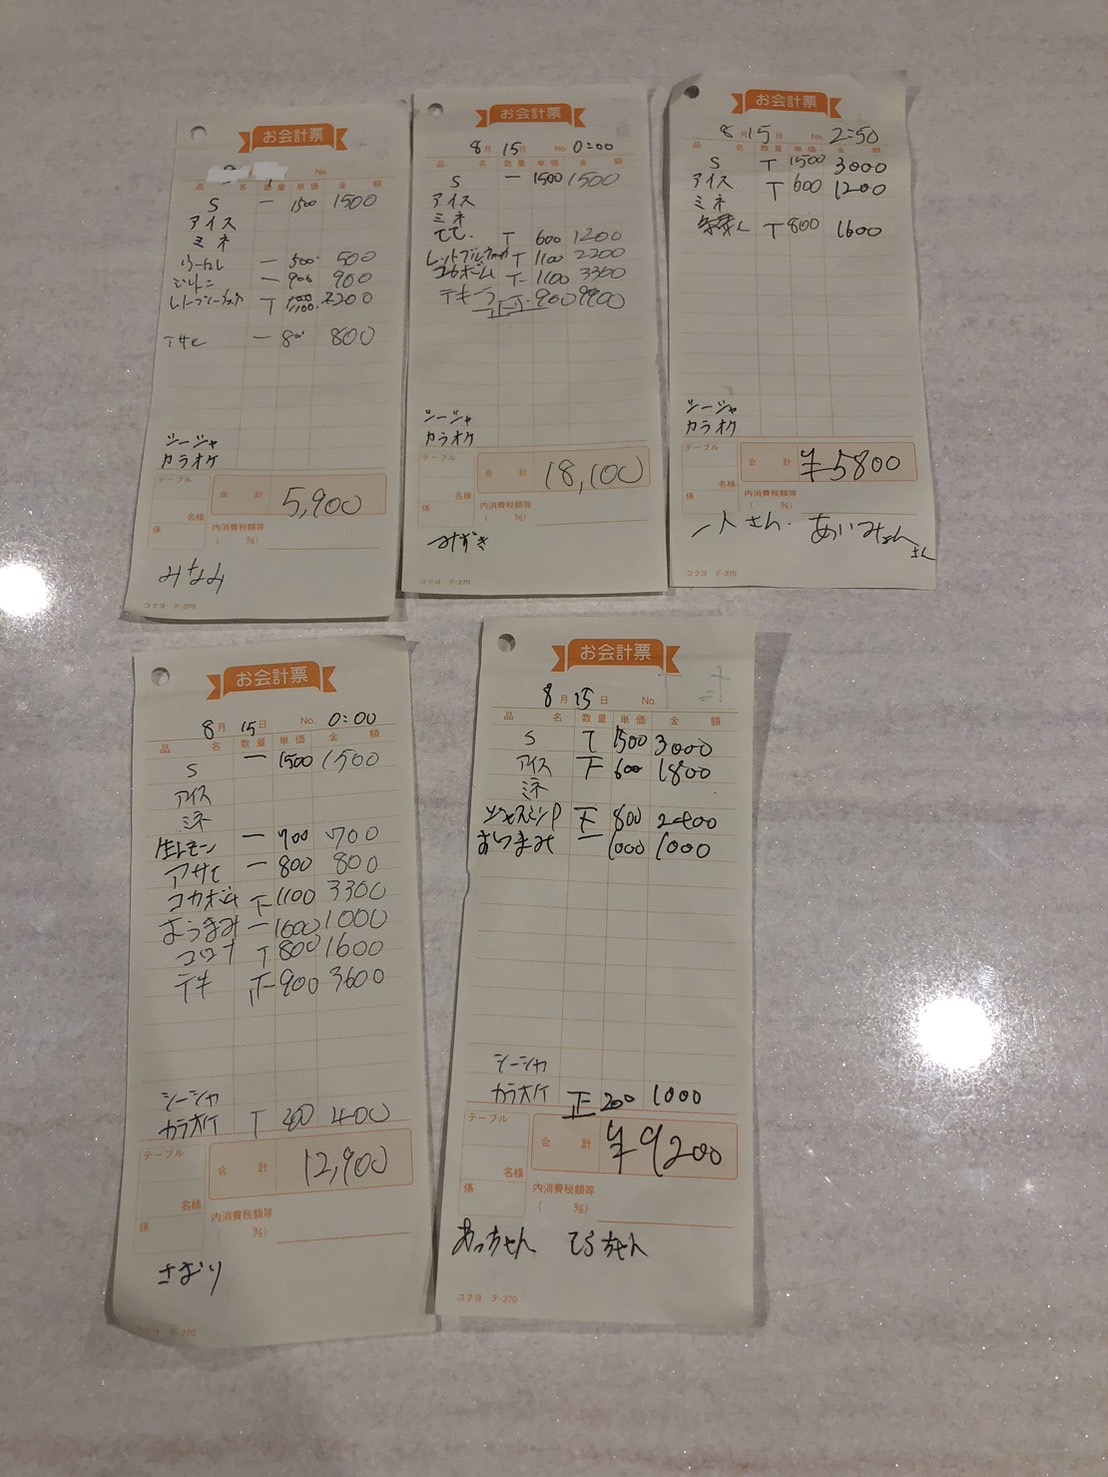 お会計票
No.
品 名 数量 単価 金 額
S 一 1500 1500
アイス
ミネ
一 500 500
ジントニ 一 900 900
T 1100 2200
アサヒ 一 800 800
シーシャ
カラオケ
テーブル
合 計 5,900
名様
係
内消費税額等
( %)
みなみ
コクヨ テ-270
お会計票
8月15日 No. 0:00
品 名 数量 単価 金 額
S 一 1500 1500
アイス
ミネ
T 600 1200
T 1100 2200
コカボム 下 1100 3300
テキーラ 正正 900 9900
シーシャ
カラオケ
テーブル
合 計 18,100
名様
係
内消費税額等
( %)
みずき
コクヨ テ-270
お会計票
8月15日 No. 2:50
品 名 数量 単価 金 額
S T 1500 3000
アイス T 600 1200
ミネ
T 800 1600
シーシャ
カラオケ
テーブル
合 計 ¥5800
名様
係
内消費税額等
( %)
一人さん. あいみょんさん
コクヨ テ-270
お会計票
8月15日 No. 0:00
品 名 数量 単価 金 額
S 一 1500 1500
アイス
ミネ
生レモン 一 700 700
アサヒ 一 800 800
コカボム 下 1100 3300
おつまみ 一 1000 1000
コロナ T 800 1600
テキ 正 900 3600
シーシャ
カラオケ T 200 400
テーブル
合 計 12,900
名様
係
内消費税額等
( %)
さおり
コクヨ テ-270
お会計票
8月15日 No.
品 名 数量 単価 金 額
S T 1500 3000
アイス 下 600 1800
ミネ
ジャスミンP 下 800 2400
おつまみ 一 1000 1000
シーシャ
カラオケ 正 200 1000
テーブル
合 計 ¥9200
名様
係
内消費税額等
( %)
あっちゃん てらちゃん
コクヨ テ-270